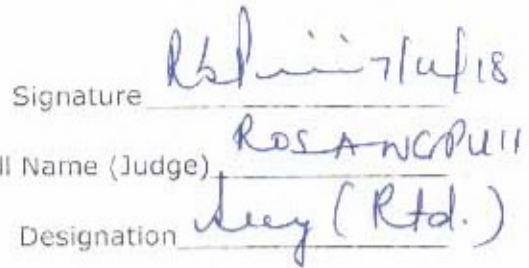 Signature 7/11/18
ll Name (Judge) ROSANGPUII
Designation Secy (Rtd.)